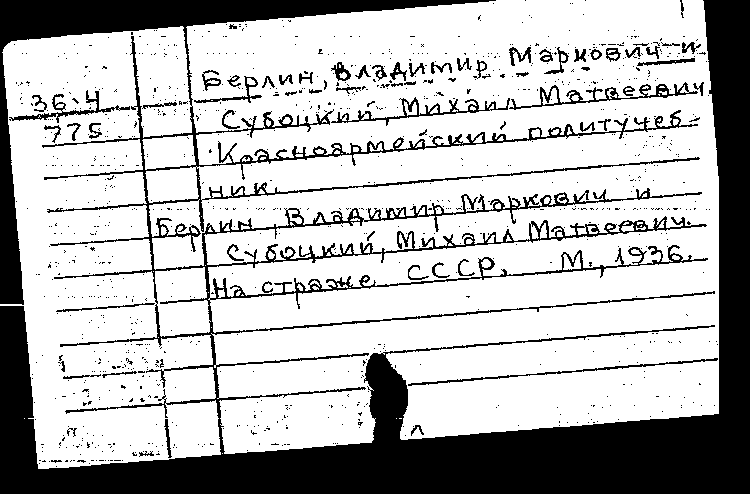 Берлин, Владимир Маркович и
36.4
Субоцкий, Михаил Матвеевич
775
Красноармейский политучеб-
ник.
Берлин, Владимир Маркович и
Субоцкий, Михаил Матвеевич.
На страже СССР. М., 1936.